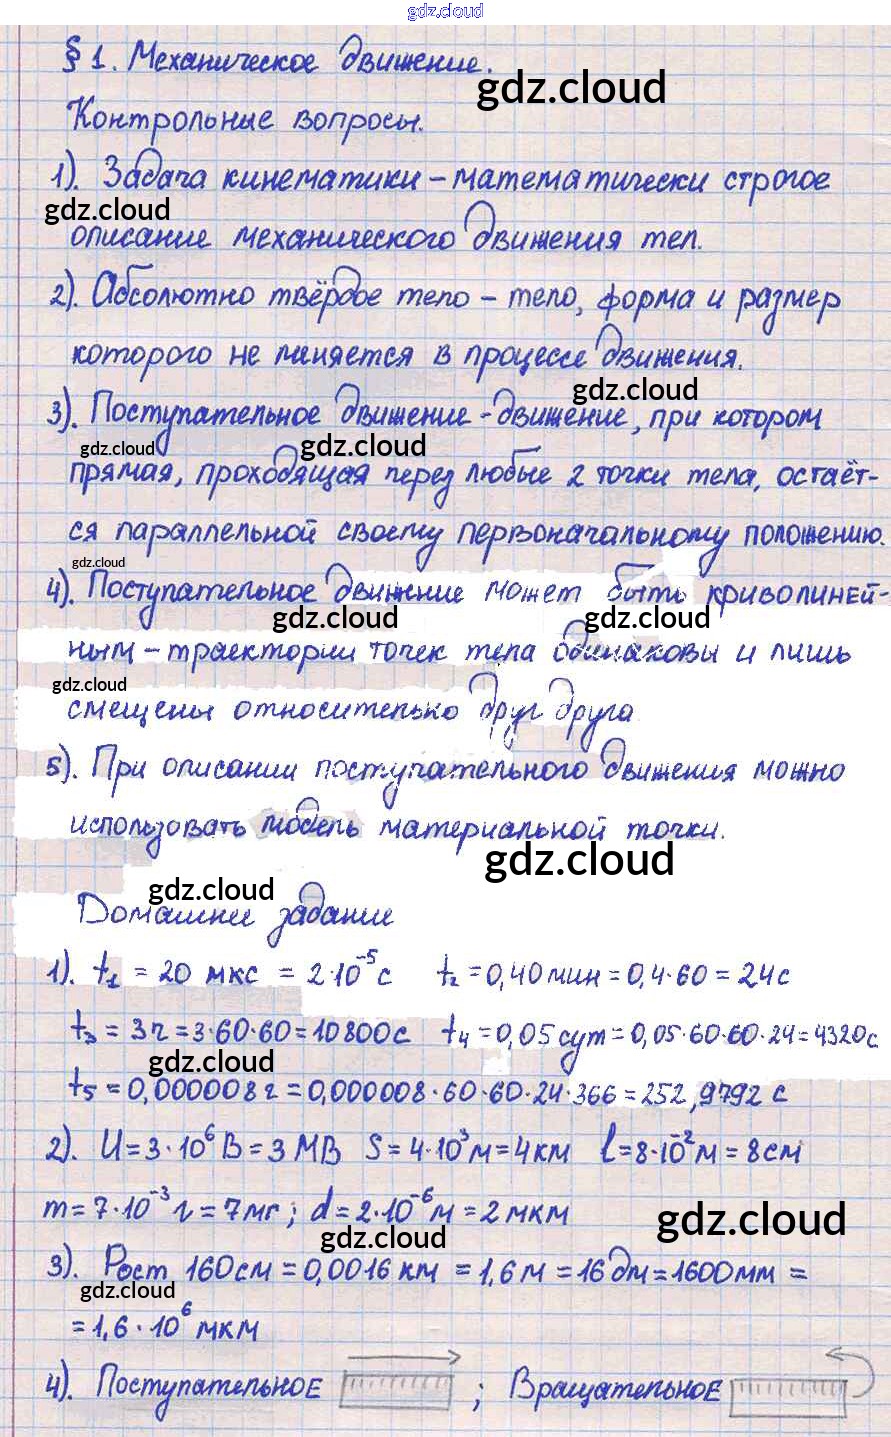 gdz.cloud
§ 1. Механическое движение.
gdz.cloud
Контрольные вопросы.
1). Задача кинематики – математически строгое
gdz.cloud
описание механического движения тел.
2). Абсолютно твёрдое тело – тело, форма и размер
которого не меняется в процессе движения.
gdz.cloud
3). Поступательное движение - движение, при котором
gdz.cloud gdz.cloud
прямая, проходящая через любые 2 точки тела, остаёт-
ся параллельной своему первоначальному положению.
gdz.cloud
4). Поступательное движение может быть криволиней-
gdz.cloud gdz.cloud
ным – траектории точек тела одинаковы и лишь
gdz.cloud
смещены относительно друг друга
5). При описании поступательного движения можно
использовать модель материальной точки.
gdz.cloud
gdz.cloud
Домашнее задание
1). t₁ = 20 мкс = 2·10⁻⁵с t₂ = 0,40мин = 0,4·60 = 24с
t₃ = 3ч = 3·60·60 = 10800с t₄ = 0,05сут = 0,05·60·60·24 = 4320с
gdz.cloud
t₅ = 0,000008г = 0,000008·60·60·24·366 = 252,9792 с
2). U = 3·10⁶В = 3 МВ S = 4·10³м = 4км l = 8·10⁻²м = 8см
m = 7·10⁻³г = 7мг; d = 2·10⁻⁶м = 2мкм
gdz.cloud gdz.cloud
3). Рост 160см = 0,0016 км = 1,6м = 16дм = 1600мм =
gdz.cloud
= 1,6·10⁶ мкм
4). Поступательное ; Вращательное